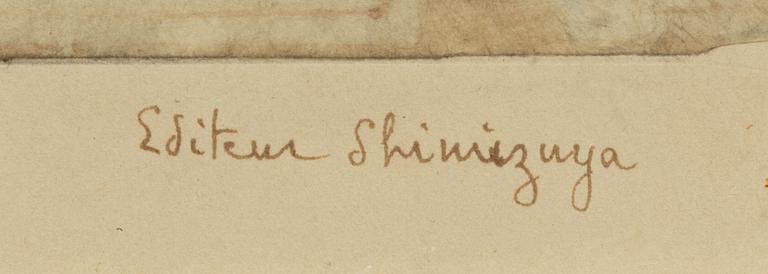 Editeur Shimizuya